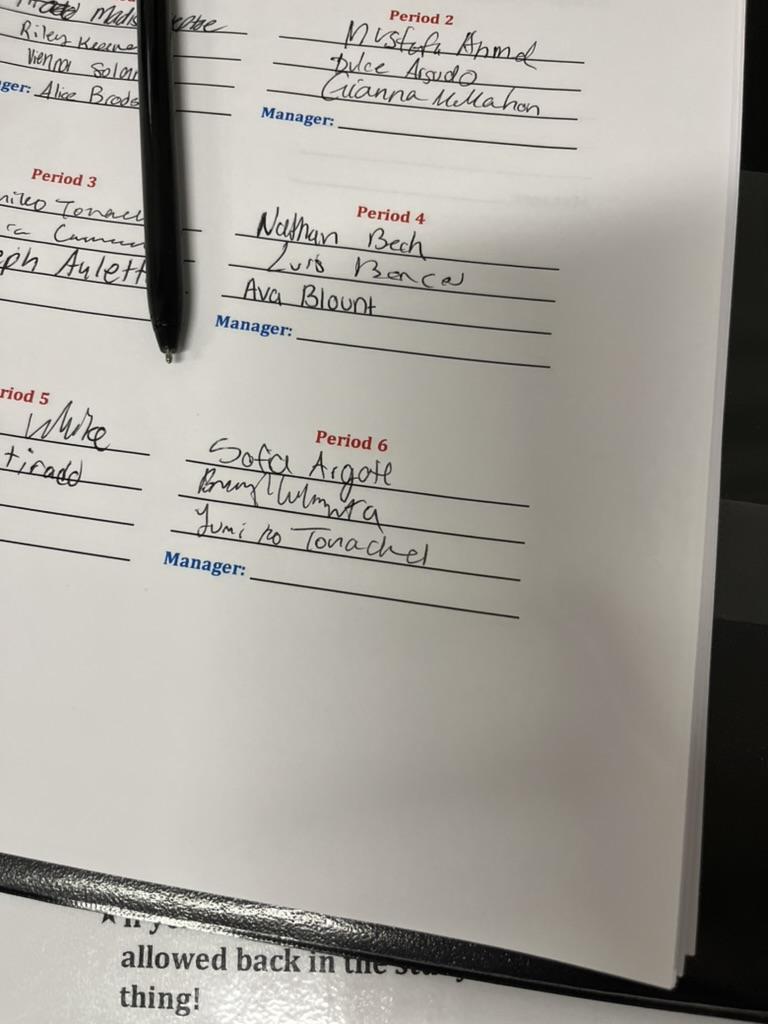 Madis
Riley Keane
Vienna Solor
ger: Alice Brods
Period 2
Mustafa Ahmed
Dulce Argudo
Gianna McMahon
Manager:
Period 3
miko Tonach
ph Aulett
Period 4
Nathan Bech
Luis
Ava Blount
Manager:
riod 5
White
tirado
Period 6
Sofia Argote
Yumi ko Tonachel
Manager:
allowed back in the
thing!